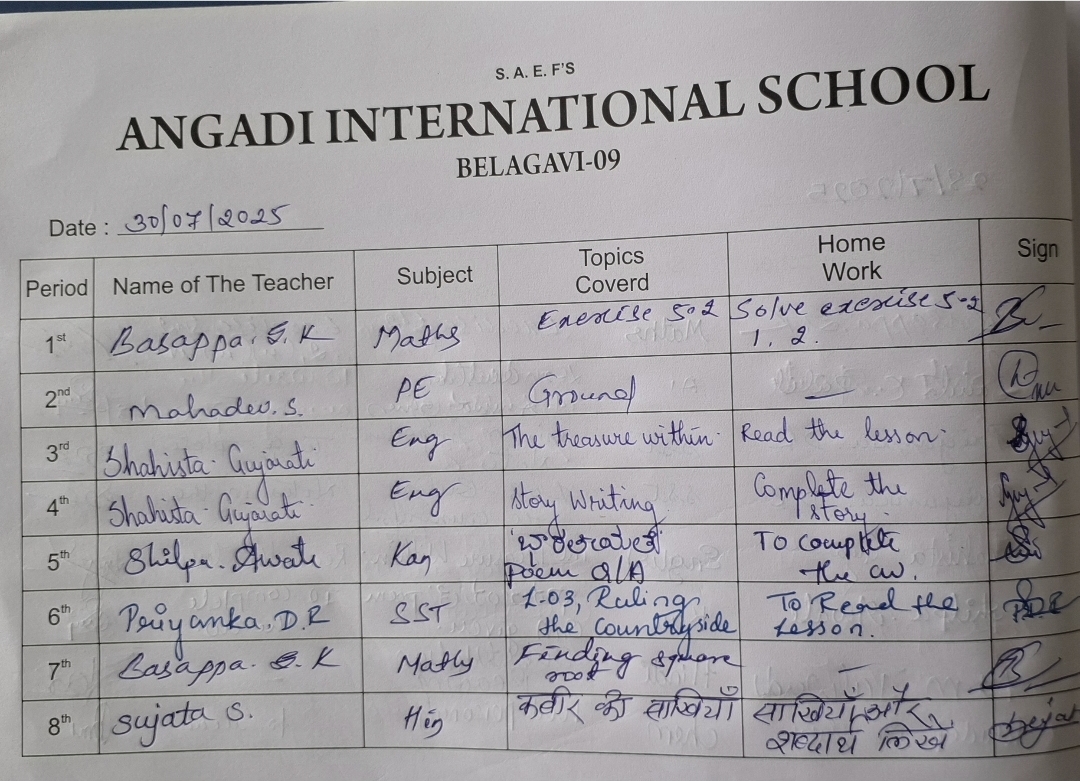 S. A. E. F'S
ANGADI INTERNATIONAL SCHOOL
BELAGAVI-09
Date : 30/07/2025
Period Name of The Teacher Subject Topics Coverd Home Work Sign
1st Basappa. S. K Maths Exercise 5.2 Solve exercise 5.2
1, 2.
2nd Mahadev. S. PE Ground —
3rd Shahista Gujarati Eng The treasure within. Read the lesson.
4th Shahista Gujarati Eng Story Writing Complete the
story.
5th Shilpa. Awate Kan To complete
Poem Q/A the cw.
6th Priyanka. D.R SST L-03, Ruling To Read the
the Countryside Lesson.
7th Basappa. S. K Maths Finding square —
root
8th Sujata S. Hin कबीर की साखियाँ साखियाँ और
शब्दार्थ लिखे